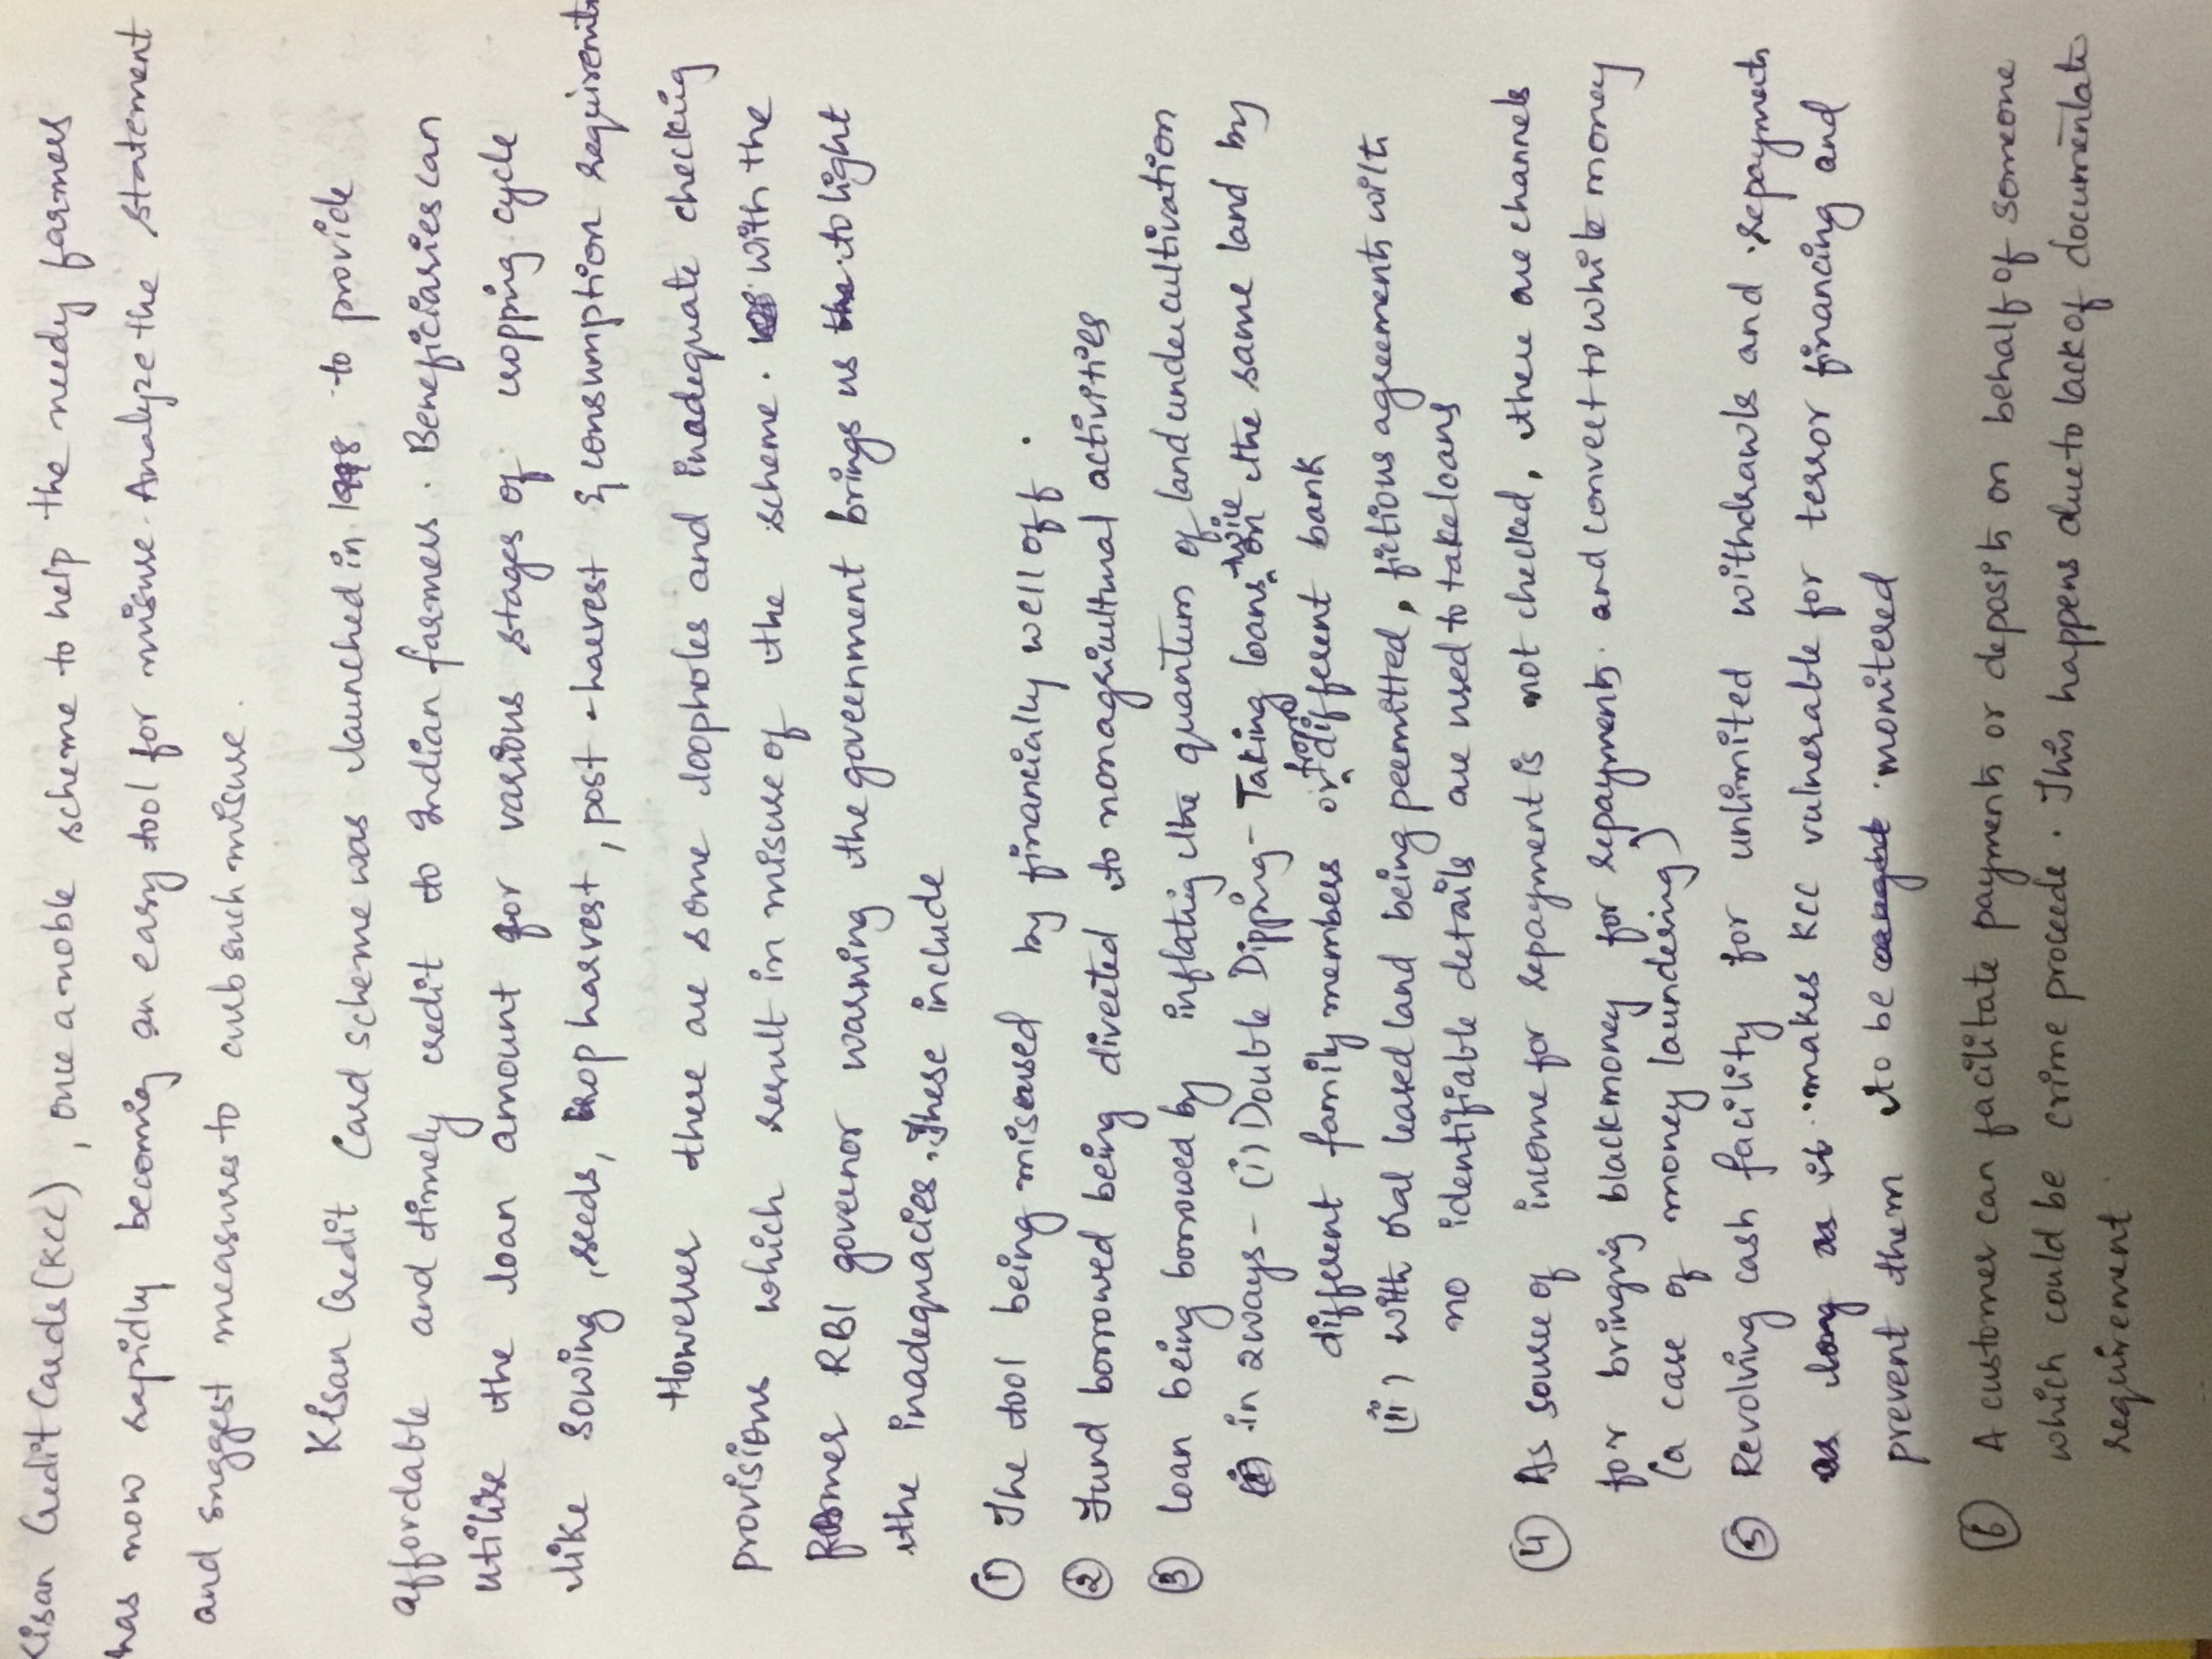 Kisan Credit Cards (KCC), once a noble scheme to help the needy farmers
has now rapidly becoming an easy tool for misuse. Analyze the statement
and suggest measures to curb such misuse.
Kisan Credit Card scheme was launched in 1998, to provide
affordable and timely credit to Indian farmers. Beneficiaries can
utilise the loan amount for various stages of cropping cycle
like sowing, seeds, crop harvest, post-harvest & consumption requirements
However there are some loopholes and inadequate checking
provisions which result in misuse of the scheme. with the
former RBI governor warning the government brings us to light
the inadequacies. These include
① The tool being misused by financially well off.
② Fund borrowed being diverted to nonagricultural activities
③ Loan being borrowed by inflating the quantum of land under cultivation
in 2 ways - (i) Double Dipping - Taking loans twice on the same land by
different family members or from different bank
(ii) with oral leased land being permitted, fictious agreements with
no identifiable details are used to take loans
④ As source of income for repayment is not checked, there are channels
for bringing black money for repayments. and convert to white money
(a case of money laundering)
⑤ Revolving cash facility for unlimited withdrawls and repayments
makes KCC vulnerable for terror financing and
prevent them to be monitered
⑥ A customer can facilitate payments or deposits on behalf of someone
which could be crime proceede. This happens due to lack of documentate
requirement.